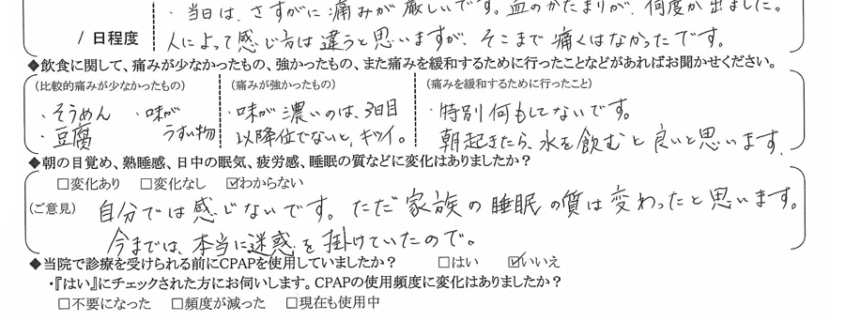 ・当日は、さすがに痛みが厳しいです。血のかたまりが、何度か出ました。
/ 日程度 人によって感じ方は違うと思いますが、そこまで痛くはなかったです。
◆飲食に関して、痛みが少なかったもの、強かったもの、また痛みを緩和するために行ったことなどがあればお聞かせください。
(比較的痛みが少なかったもの) (痛みが強かったもの) (痛みを緩和するために行ったこと)
・そうめん ・味が ・味が濃いのは、3日目 ・特別何もしてないです。
・豆腐 うすい物 以降位でないと、キツイ。 朝起きたら、水を飲むと良いと思います。
◆朝の目覚め、熟睡感、日中の眠気、疲労感、睡眠の質などに変化はありましたか?
□変化あり □変化なし ☑わからない
(ご意見) 自分では感じないです。ただ家族の睡眠の質は変わったと思います。
今までは、本当に迷惑を掛けていたので。
◆当院で診療を受けられる前にCPAPを使用していましたか? □はい ☑いいえ
・『はい』にチェックされた方にお伺いします。CPAPの使用頻度に変化はありましたか?
□不要になった □頻度が減った □現在も使用中